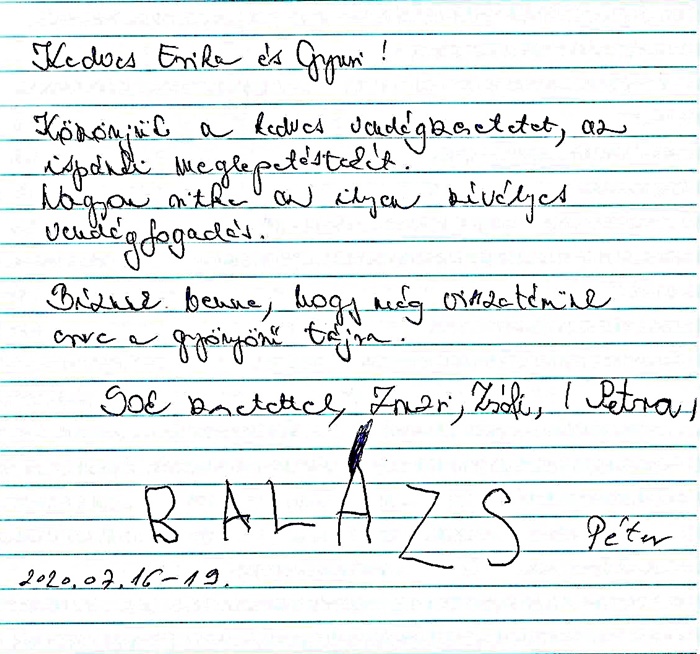 Kedves Erika és Gyuri!
Köszönjük a kedves vendégszeretetet, az
ispánki meglepetéstelit.
Nagyon ritka az ilyen szívélyes
vendégfogadás.
Bízunk benne, hogy még visszatérünk
erre a gyönyörű tájra.
Sok szeretettel, Zsuzsi, Zsófi, Petra,
BALÁZS Péter
2020.07.16-19.